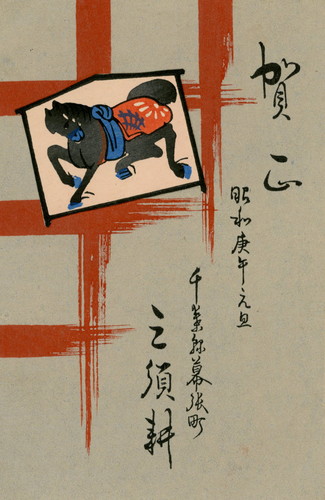 賀正
昭和庚午元旦
千葉縣幕張町
三須耕